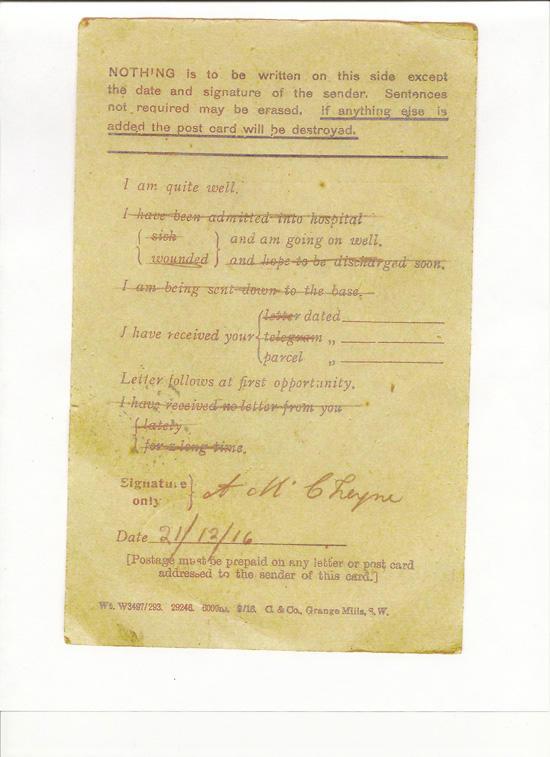 NOTHING is to be written on this side except
the date and signature of the sender. Sentences
not required may be erased. If anything else is
added the post card will be destroyed.
I am quite well.
I have been admitted into hospital
sick
and am going on well.
wounded
and hope to be discharged soon.
I am being sent down to the base.
letter dated
I have received your
telegram „
parcel „
Letter follows at first opportunity.
I have received no letter from you
lately
for a long time.
Signature
only
A McCheyne
Date 21/12/16
[Postage must be prepaid on any letter or post card
addressed to the sender of this card.]
Wt. W3497/293. 29246. 6000m. 9/16. C. & Co., Grange Mills, S.W.